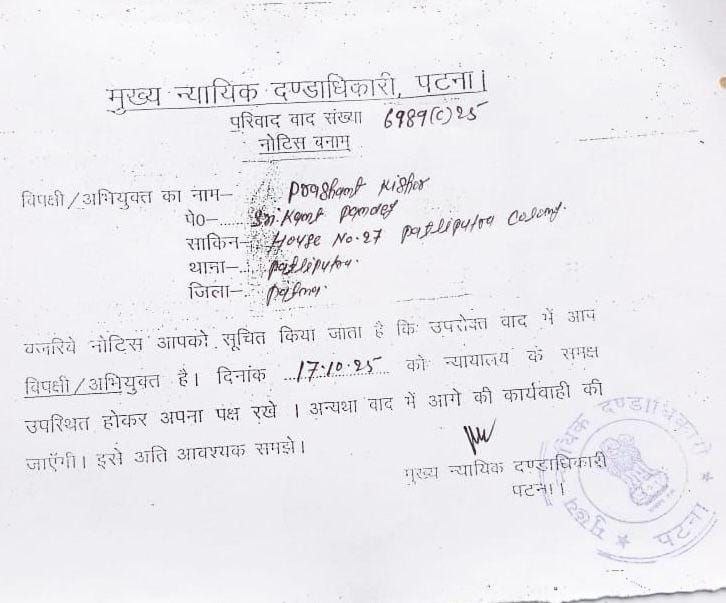 मुख्य न्यायिक दण्डाधिकारी, पटना।
परिवाद वाद संख्या 6989(C)25
नोटिस बनाम्
विपक्षी/अभियुक्त का नाम– Prashant Kishor
पे०–...... Sri. Kant Pandey
साकिन– House No. 27 Patliputra Colony.
थाना–... Patliputra.
जिला–... Patna.
वजरिये नोटिस आपको सूचित किया जाता है कि उपरोक्त वाद में आप
विपक्षी/अभियुक्त है। दिनांक ...17.10.25... को न्यायालय के समक्ष
उपस्थित होकर अपना पंक्ष रखे । अन्यथा वाद में आगे की कार्यवाही की
जाएँगी। इसे अति आवश्यक समझे।
मुख्य न्यायिक दण्डाधिकारी
पटना।।
मुख्य न्यायिक दण्डाधिकारी
★ पटना ★